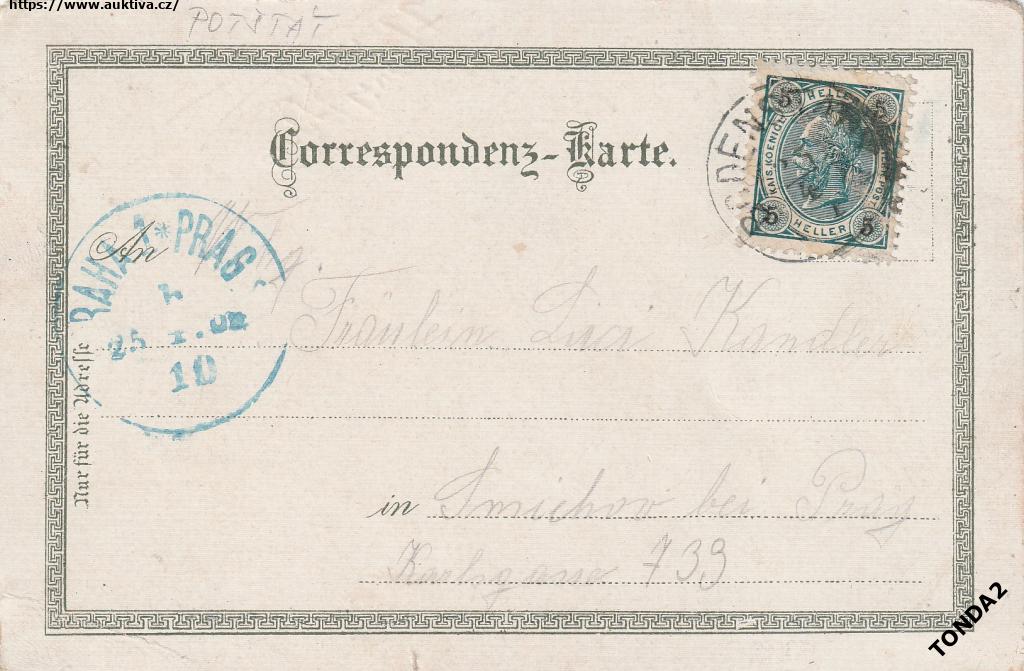 https://www.auktiva.cz/
POTŠTÁT
Correspondenz-Karte.
5 HELLER 5
KAIS. KOENIGL.
5 HELLER 5
PRAHA 1 * PRAG
25 1.02
10
An
Fräulein Luci Kandler
Nur für die Adresse
in Smichov bei Prag
Karlsgasse 739
TONDA2